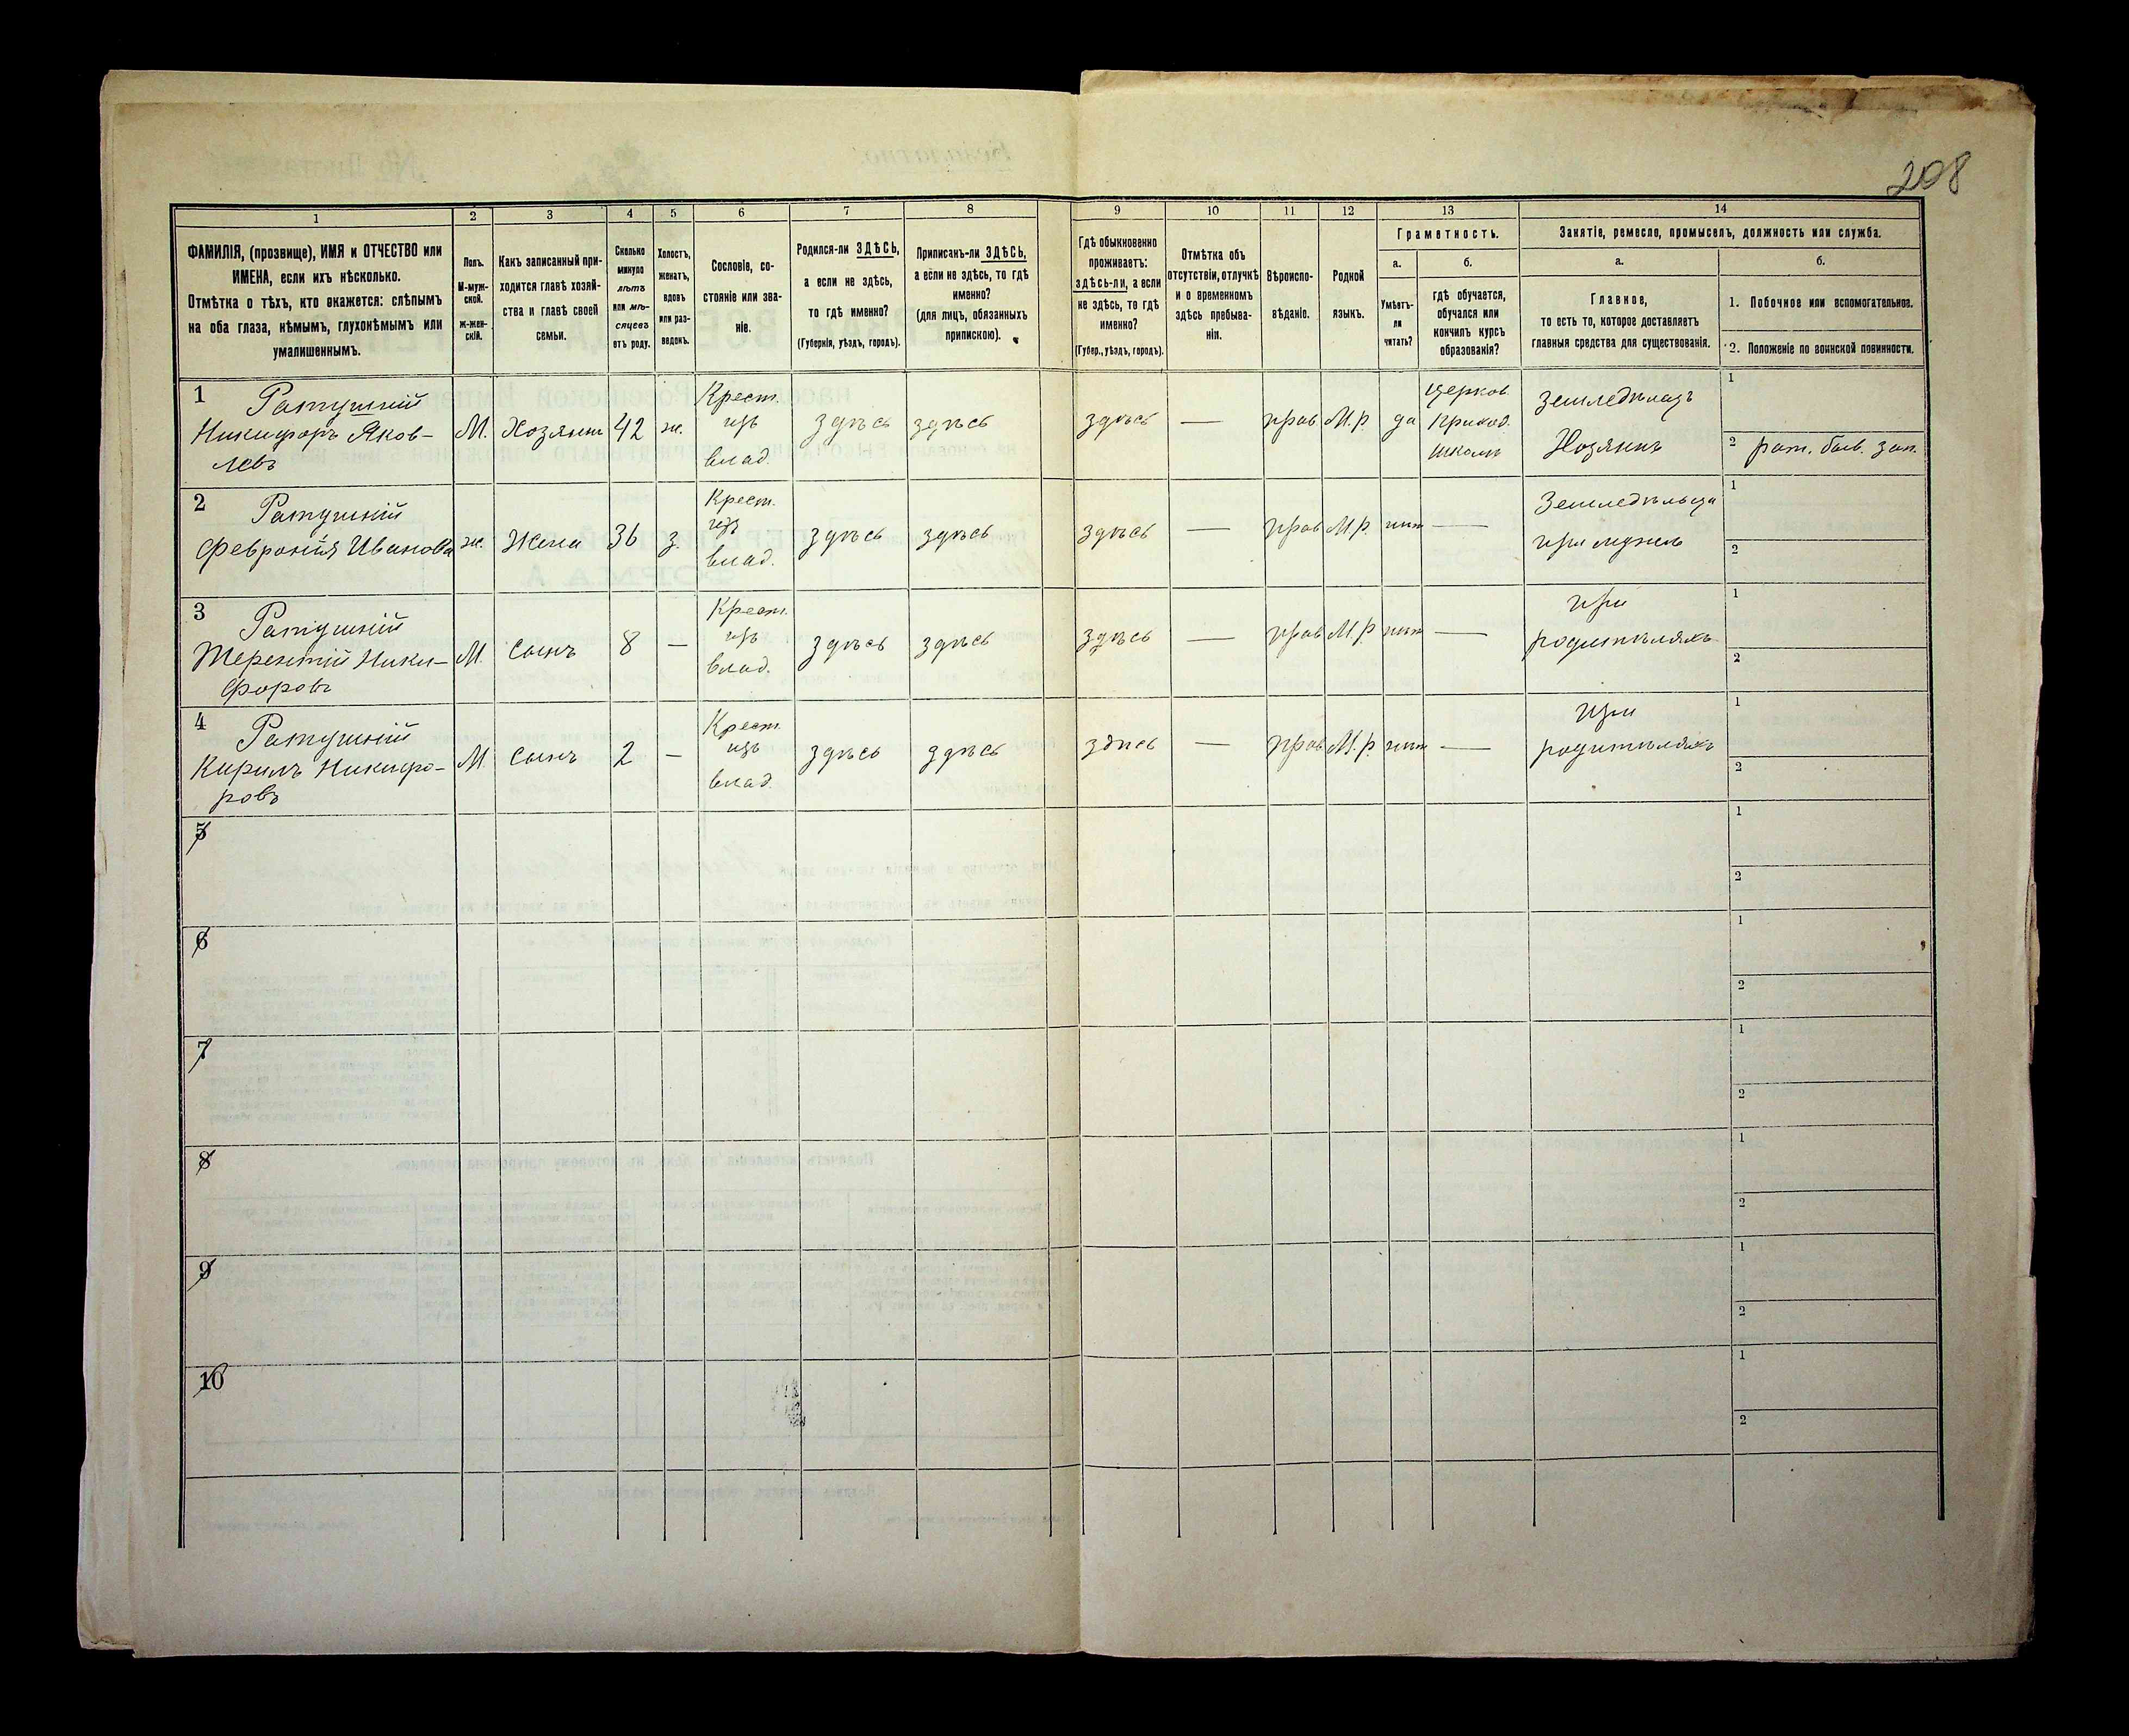 208
1 2 3 4 5 6 7 8 9 10 11 12 13 14
ФАМИЛІЯ, (прозвище), ИМЯ и ОТЧЕСТВО или
ИМЕНА, если ихъ нѣсколько.
Отмѣтка о тѣхъ, кто окажется: слѣпымъ
на оба глаза, нѣмымъ, глухонѣмымъ или
умалишеннымъ.
Полъ.
М-муж-
ской.
Ж-жен-
скій.
Какъ записанный при-
ходится главѣ хозяй-
ства и главѣ своей
семьи.
Сколько
минуло
лѣтъ
или мѣ-
сяцевъ
отъ роду.
Холостъ,
женатъ,
вдовъ
или раз-
веденъ.
Сословіе, со-
стояніе или зва-
ніе.
Родился-ли ЗДѢСЬ,
а если не здѣсь,
то гдѣ именно?
(Губернія, уѣздъ, городъ).
Приписанъ-ли ЗДѢСЬ,
а если не здѣсь, то гдѣ
именно?
(для лицъ, обязанныхъ
припискою).
Гдѣ обыкновенно
проживаетъ:
здѣсь-ли, а если
не здѣсь, то гдѣ
именно?
(Губер., уѣздъ, городъ).
Отмѣтка объ
отсутствіи, отлучкѣ
и о временномъ
здѣсь пребыва-
ніи.
Вѣроиспо-
вѣданіе.
Родной
языкъ.
Грамотность.
а.
Умѣетъ-
ли
читать?
б.
гдѣ обучается,
обучался или
кончилъ курсъ
образованія?
Занятіе, ремесло, промыселъ, должность или служба.
а.
Главное,
то есть то, которое доставляетъ
главныя средства для существованія.
б.
1. Побочное или вспомогательное.
2. Положеніе по воинской повинности.
1
Ратушній
Никифоръ Яков-
левъ
М.
Хозяинъ
42
ж.
Крест.
изъ
влад.
здѣсь
здѣсь
здѣсь
—
прав
М.р.
да
Церков.
приход.
школѣ
Земледѣлецъ
Хозяинъ
1
2 рат.
2
Ратушній
Февронія Иванова
ж.
Жена
36
з.
Крест.
изъ
влад.
здѣсь
здѣсь
здѣсь
—
прав
М.р.
нѣт
—
Земледѣльца
при мужѣ
1
2
3
Ратушній
Терентій Ники-
форовъ
М.
сынъ
8
—
Крест.
изъ
влад.
здѣсь
здѣсь
здѣсь
—
прав
М.р.
нѣт
—
при
родителяхъ
1
2
4
Ратушній
Кирилъ Никифо-
ровъ
М
сынъ
2
—
Крест.
изъ
влад.
здѣсь
здѣсь
здѣсь
—
прав
М.р.
нѣт
—
при
родителяхъ
1
2
5
1
2
6
1
2
7
1
2
8
1
2
9
1
2
10
1
2